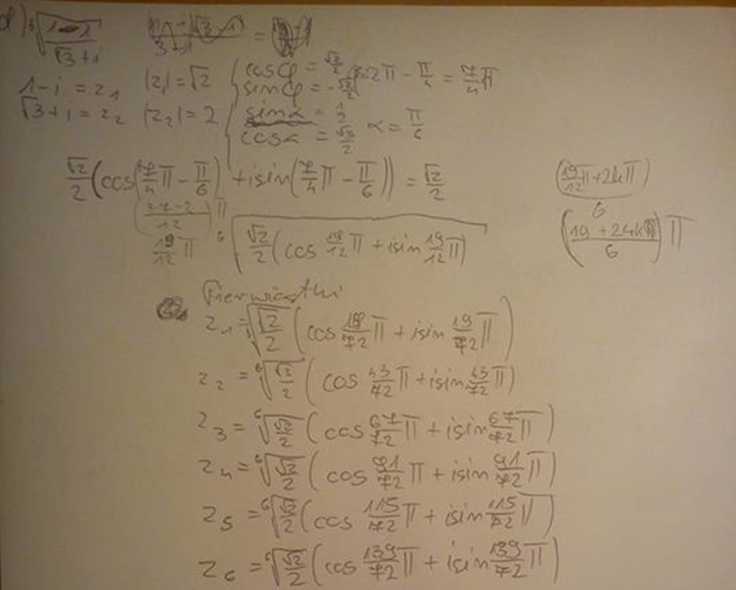 d) ⁶√((1-i)/(√3+i))
=
1-i = z₁ |z₁| = √2 { cosφ = √2/2 sinφ = -√2/2 2π - π/4 = 7/4 π
√3+i = z₂ |z₂| = 2 sinα = 1/2 cosα = √3/2 α = π/6
√2/2 (cos(7/4 π - π/6) + isin(7/4 π - π/6)) = √2/2
19/12 π ⁶√(√2/2 (cos 19/12 π + isin 19/12 π))
(19/12 π + 2kπ)/6
((19 + 24k)/6) π
Pierwiastki
z₁ = ⁶√(√2/2) (cos 19/72 π + isin 19/72 π)
z₂ = ⁶√(√2/2) (cos 43/72 π + isin 43/72 π)
z₃ = ⁶√(√2/2) (cos 67/72 π + isin 67/72 π)
z₄ = ⁶√(√2/2) (cos 91/72 π + isin 91/72 π)
z₅ = ⁶√(√2/2) (cos 115/72 π + isin 115/72 π)
z₆ = ⁶√(√2/2) (cos 139/72 π + isin 139/72 π)